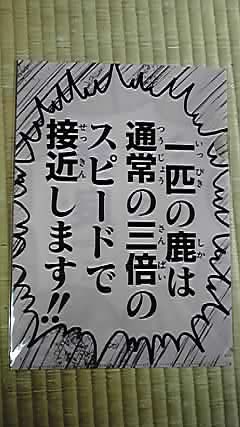 一匹の鹿は
通常の三倍の
スピードで
接近します!!